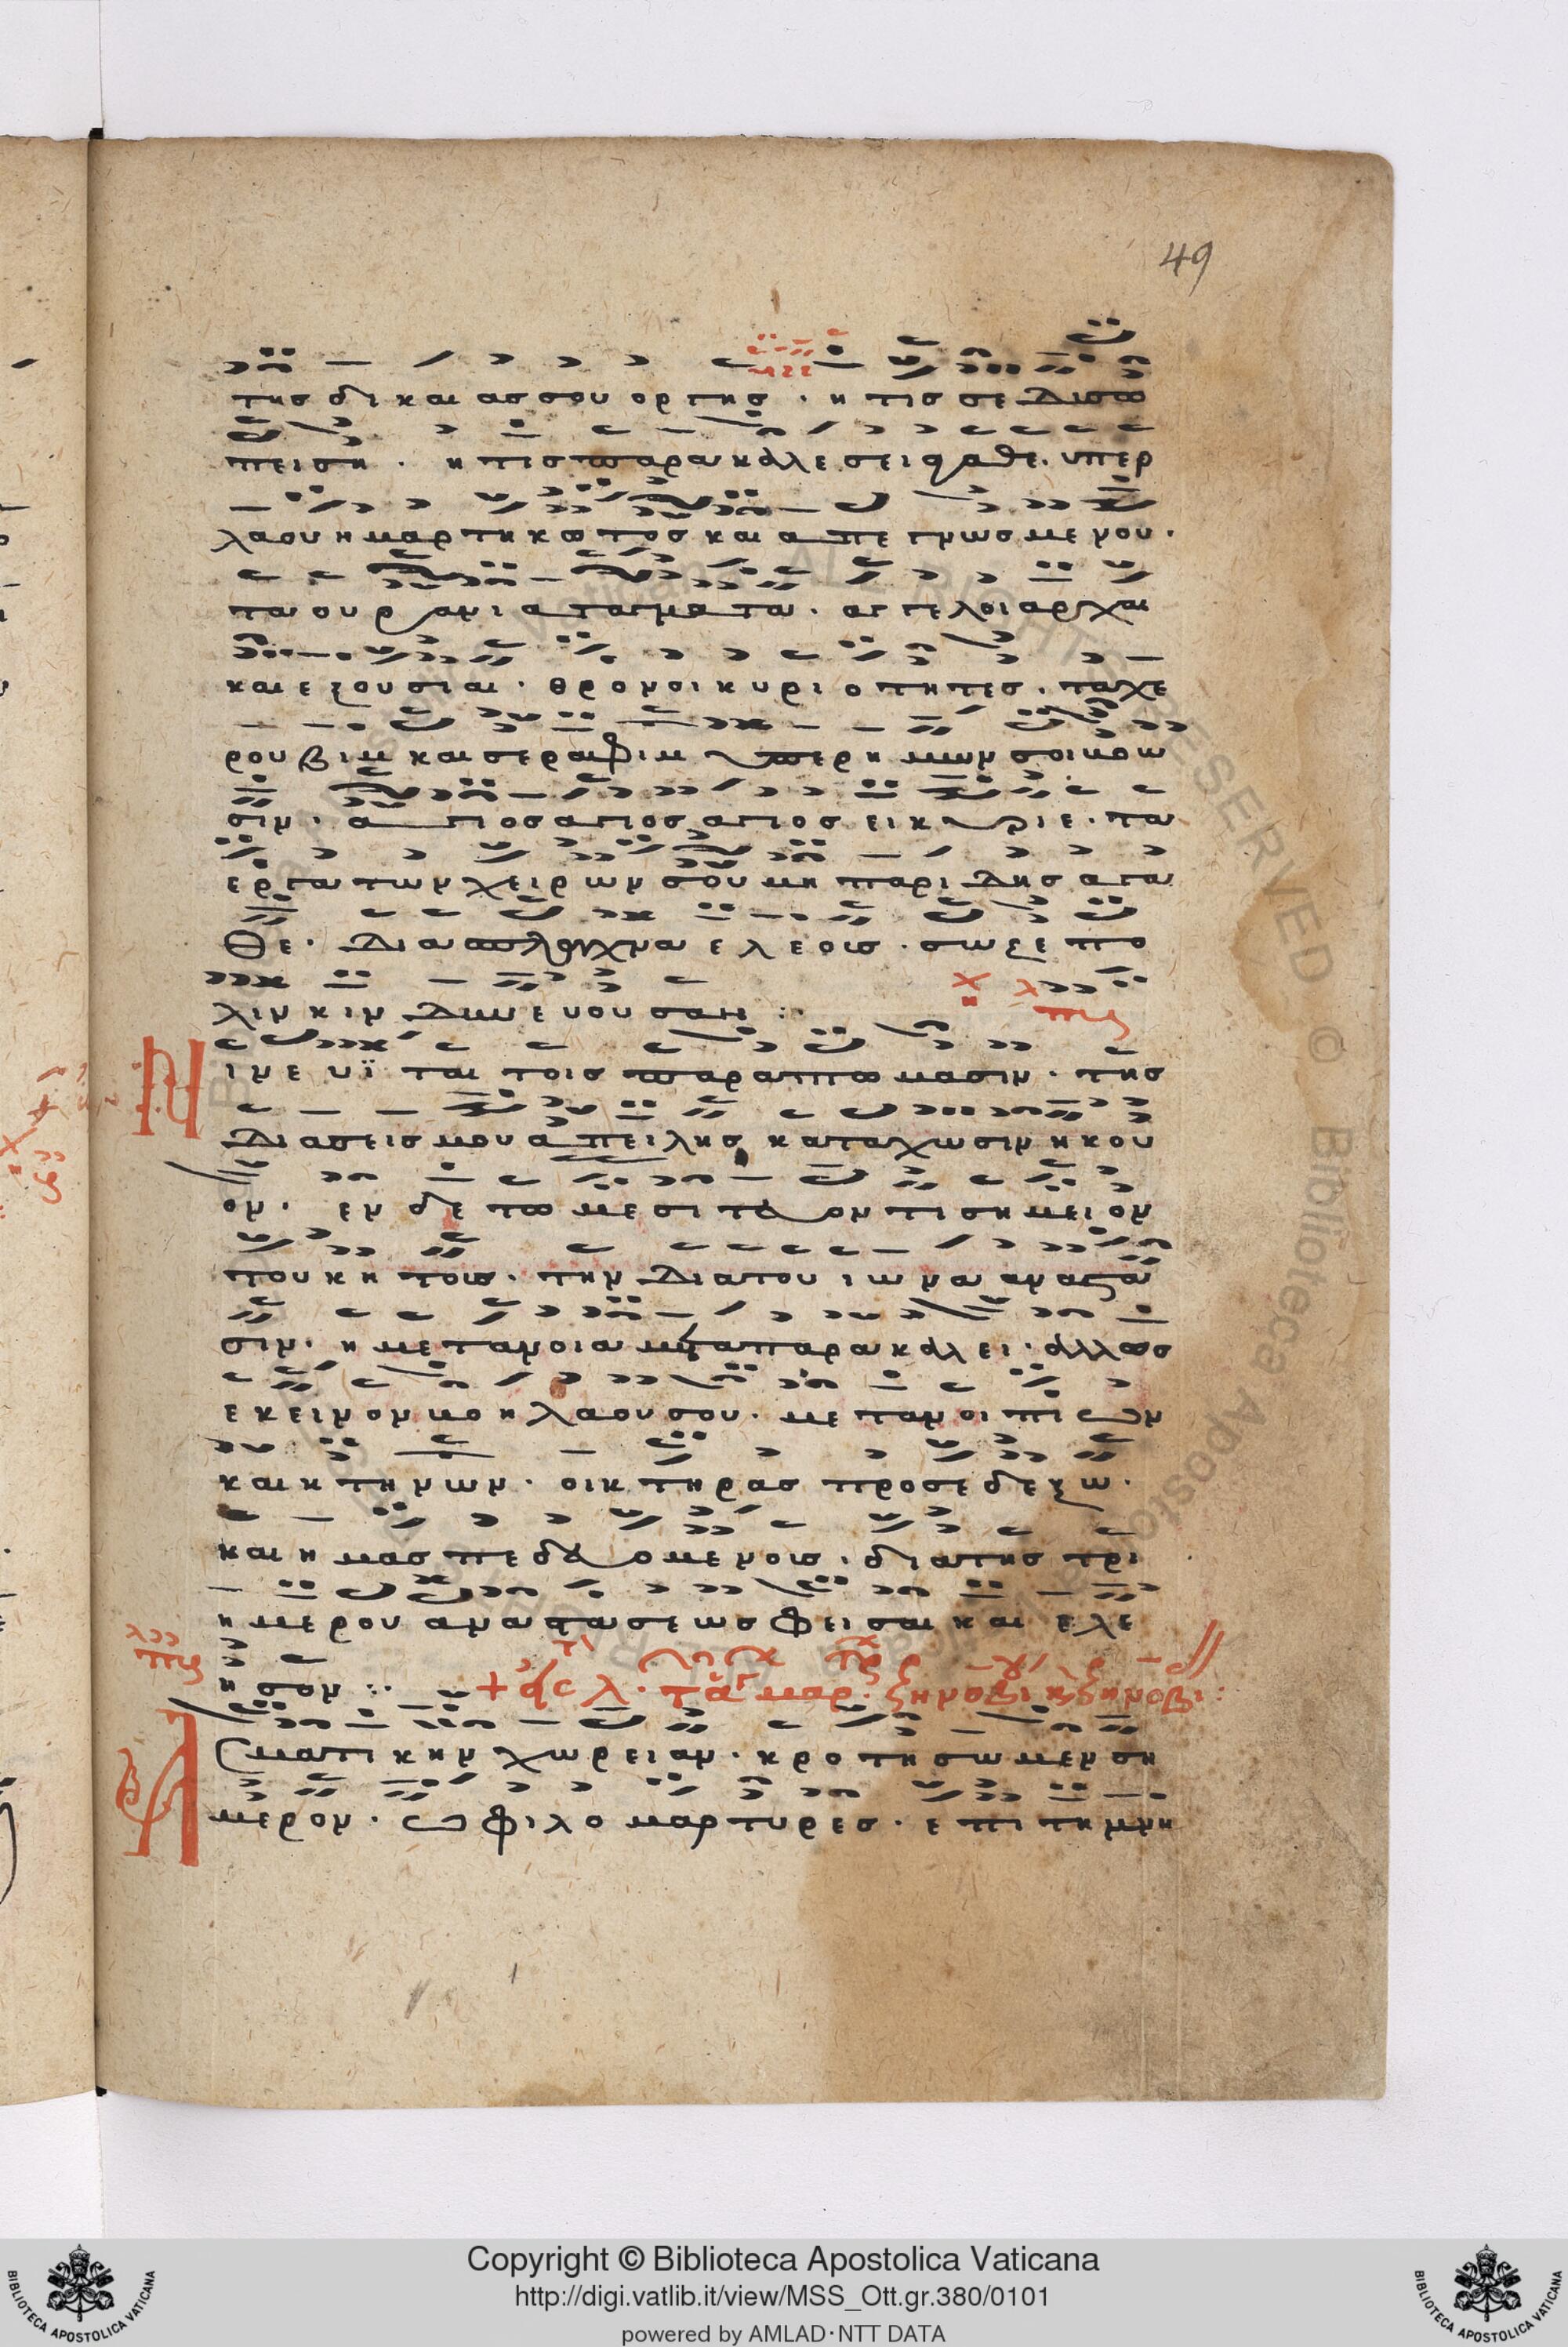 49
της δικαιασ σου οργης · η τις σε δυσω
πειση · η τις παρακαλεσει αγαθε · υπερ
λαου ημαρτηκοτος και απεγνωσμενου ·
τα ουρανια ταγματα · αγγελοι αρχαι
και εξουσιαι · θρονοι κυριοτητες · τα χε
ρουβιμ και σεραφιμ υπερ ημων σοι βοω
σιν · αγιος αγιος αγιος ει κυριε · τα
εργα των χειρων σου μη παριδης αγα
θε · δια σπλαγχνα ελεους · σωζε πο
λιν κινδυνευουσαν :·
Νινευϊται τοις παραπτωμασιν · της
δια σεισμου απειλης καταχωσιν ηκου
ον · εν δε τω μεσιτευοντι σημειον
του κητους · την δια του ιωνα αναστα
σιν · η μετανοια μετα παρακαλει · αλλ ως
εκεινον βοη λαου σου · μετα νοιπιων
και κτηνων · οικτηρας προσεδεξω ·
και ημας πεδευομενους · δια της τρι
ημερου αναστασεως φεισαι και ελε
ησον :·
Ασματικην χωρειαν · κροτησωμεν ση
μερον · ω φιλομαρτυρες · επι τη μνη
Copyright © Biblioteca Apostolica Vaticana
http://digi.vatlib.it/view/MSS_Ott.gr.380/0101
powered by AMLAD·NTT DATA
BIBLIOTECA APOSTOLICA VATICANA
BIBLIOTECA APOSTOLICA VATICANA